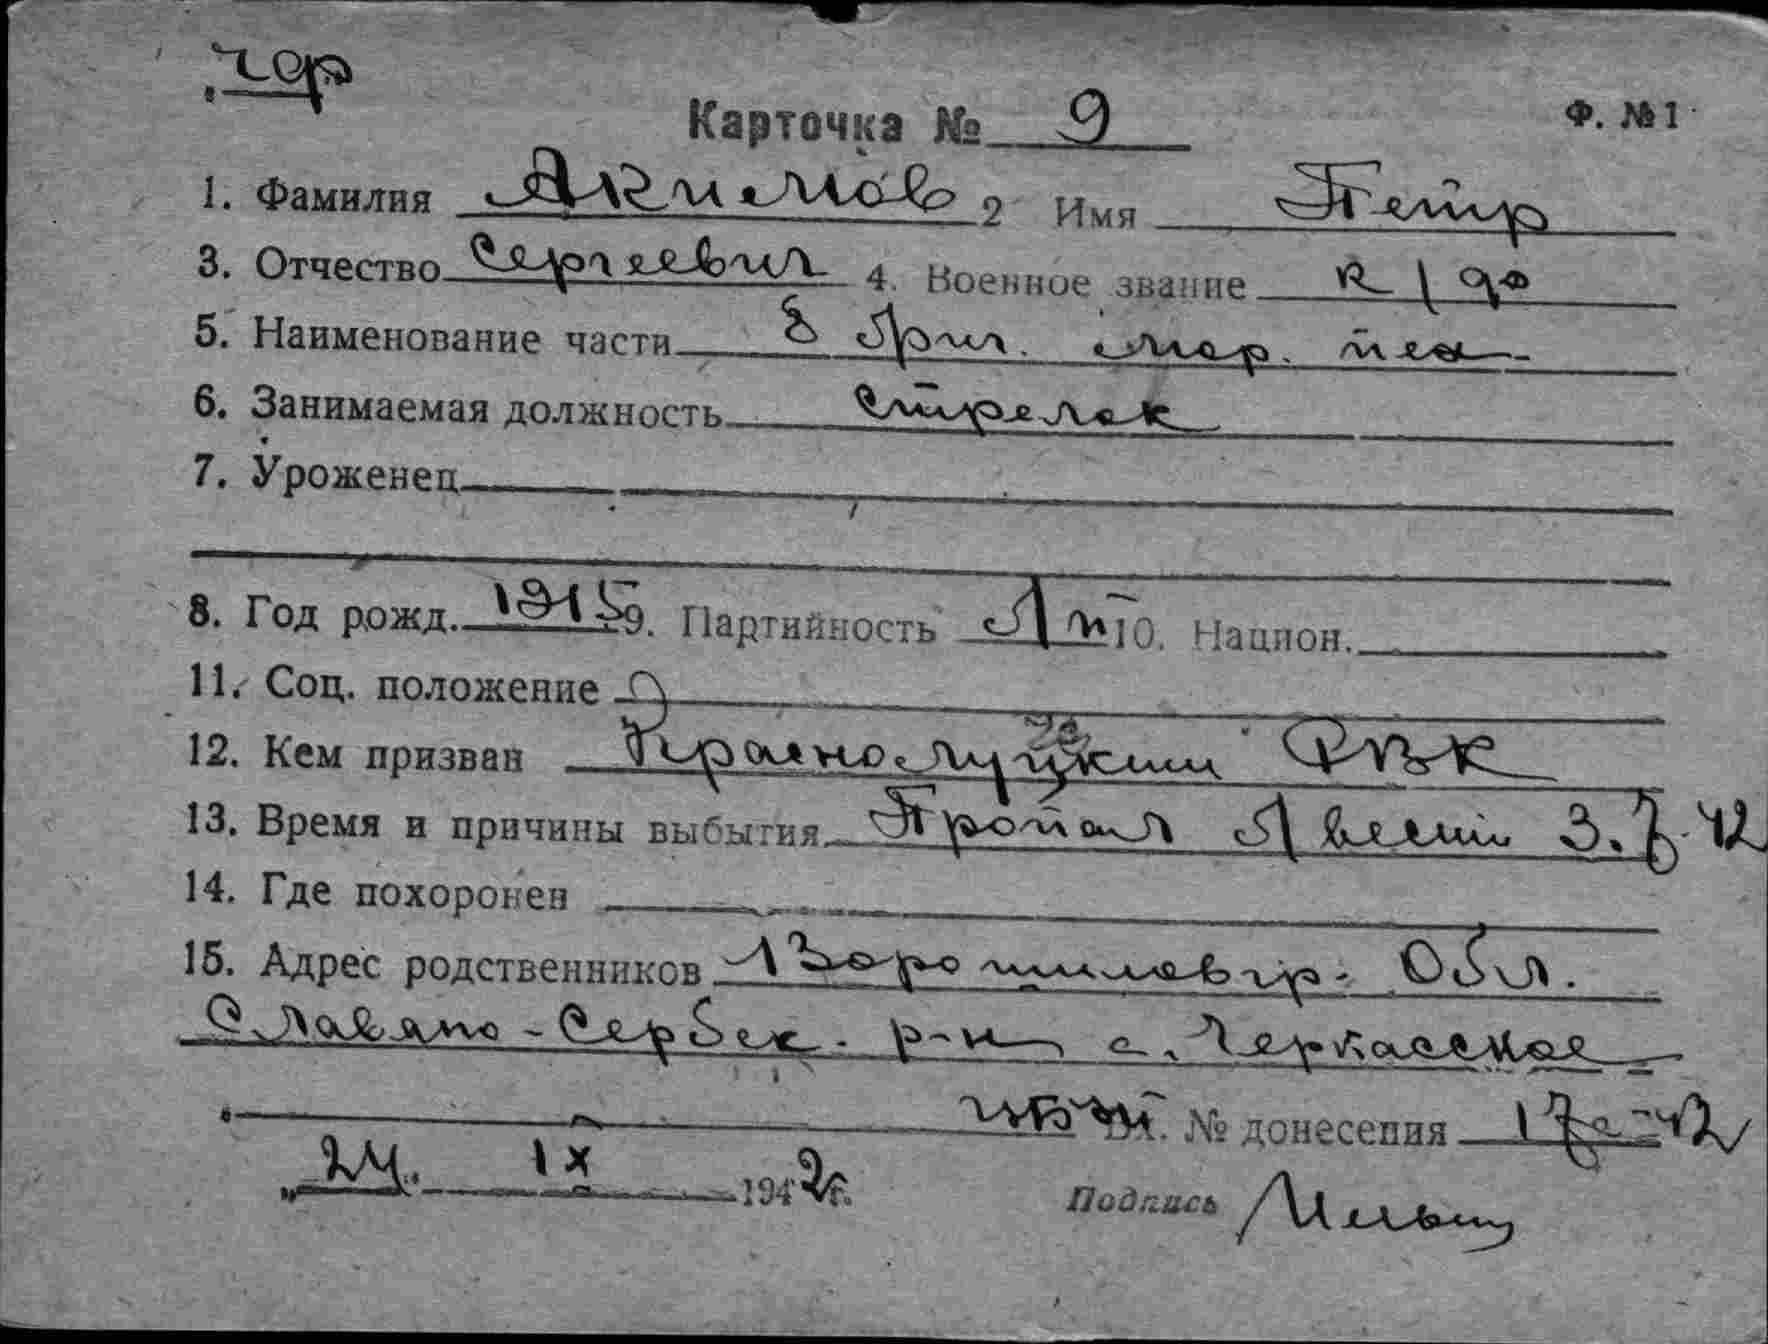 чф
Карточка № 9 Ф. №1
1. Фамилия Акимов 2 Имя Петр
3. Отчество Сергеевич 4. Военное звание к/фл
5. Наименование части 8 Бриг. мор. пех
6. Занимаемая должность стрелок
7. Уроженец
8. Год рожд. 1915 9. Партийность б/п 10. Национ.
11. Соц. положение
12. Кем призван Краснолуцкий РВК
13. Время и причины выбытия Пропал б/вести 3.7.42
14. Где похоронен
15. Адрес родственников Ворошиловгр. Обл.
Славяно-Сербск. р-н с. Черкасское
Вх. № донесения 17с-42
„24. IX 1942г.
Подпись